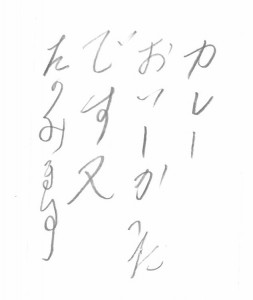 カレー
おいーかった
です又
たのみます